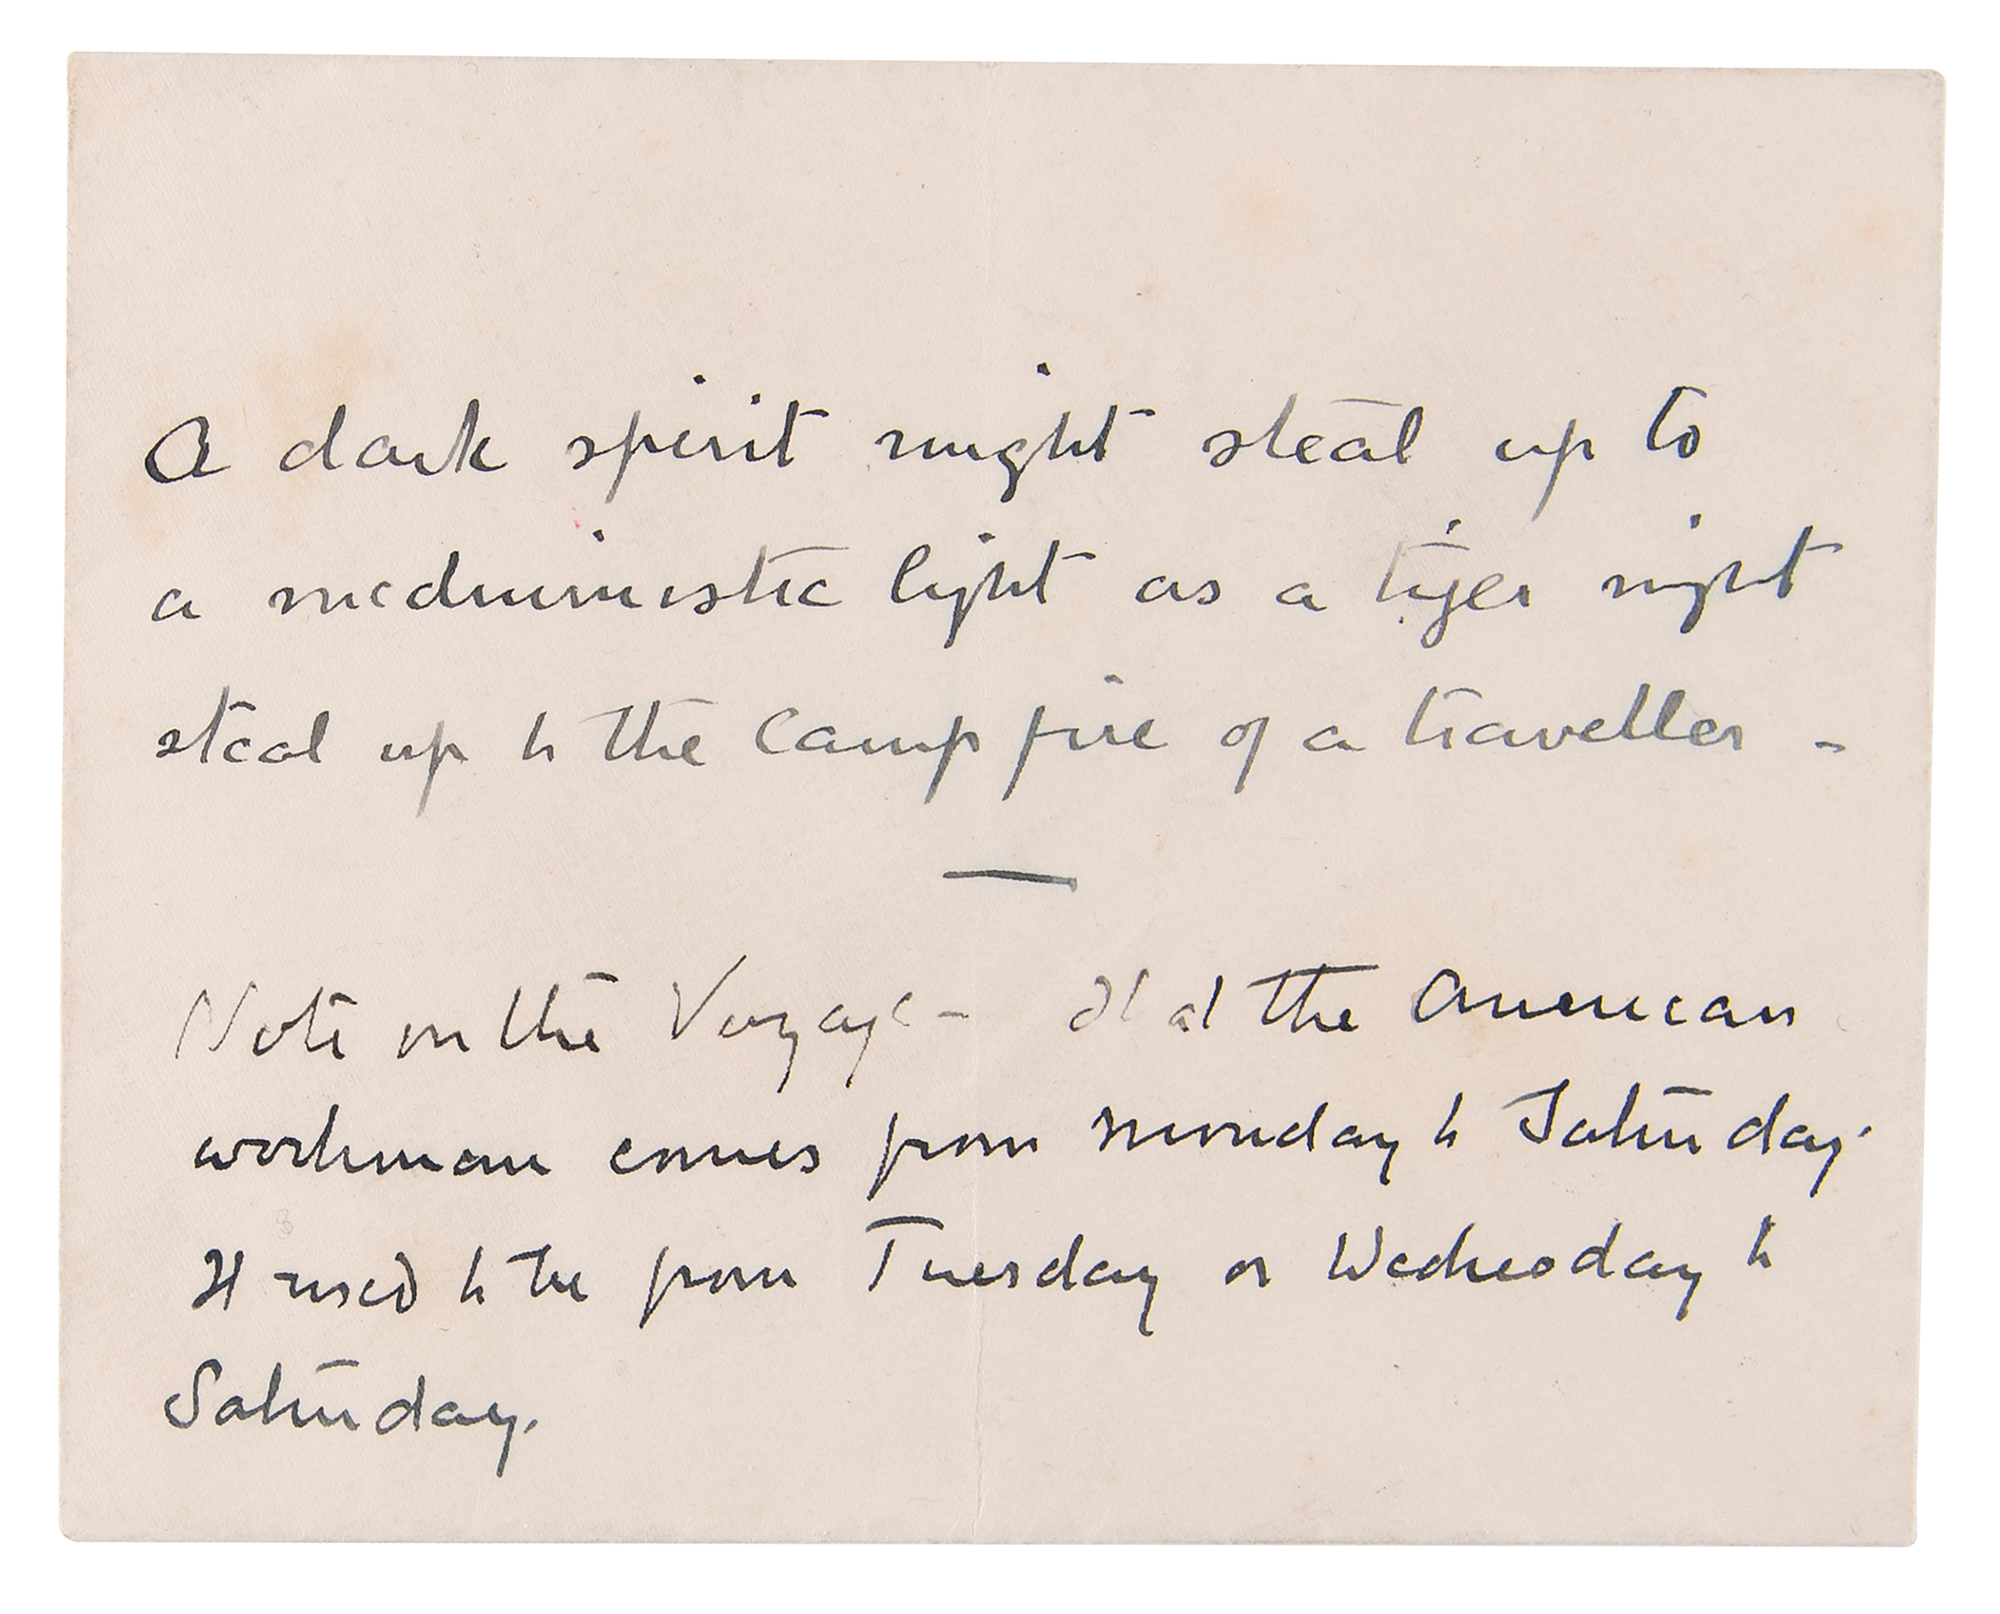 A dark spirit might steal up to
a mediumistic light as a tiger might
steal up to the camp fire of a traveller -
Note on the Voyage - the American
workman comes from Monday to Saturday.
It used to be from Tuesday or Wednesday to
Saturday.